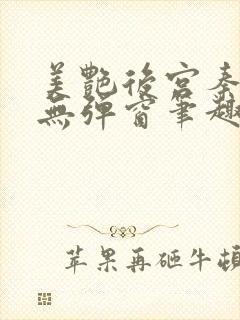 美艷後宮秦
無彈窗筆趣
苹果再砸牛頓